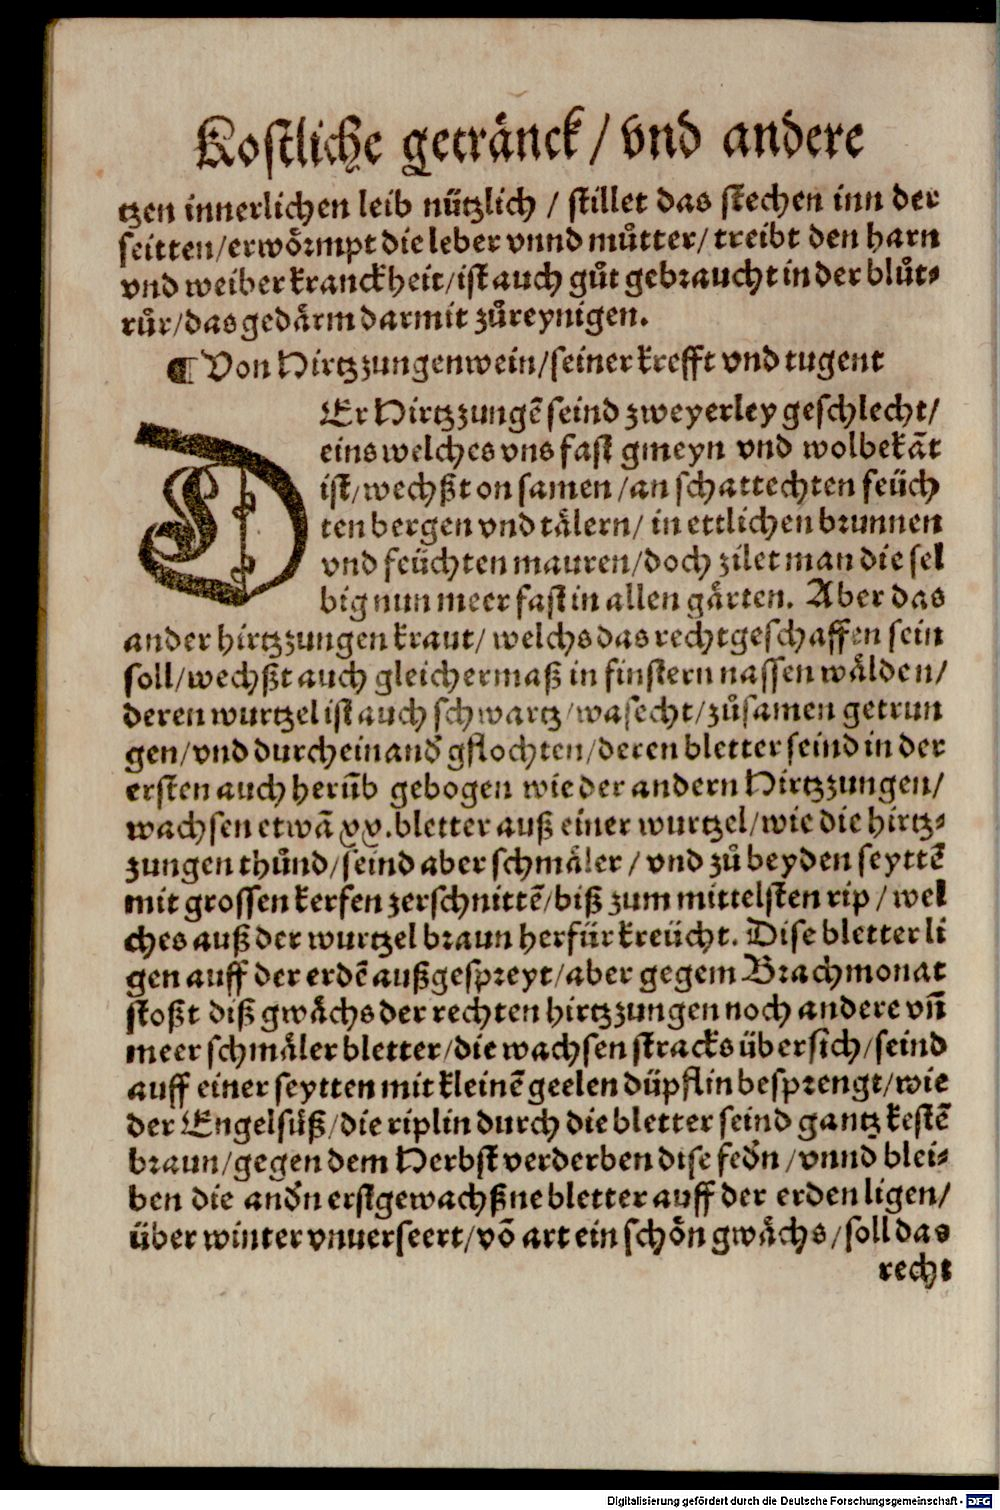 Kostliche getränck / vnd andere
tzen innerlichen leib nützlich / stillet das stechen inn der
seitten/erwörmpt die leber vnnd můtter/ treibt den harn
vnd weiber kranckheit/ist auch gůt gebraucht in der blůt-
růr/das gedärm darmit zůreynigen.
¶ Von Hirtzzungenwein/seiner krefft vnd tugent
DEr Hirtzzungē seind zweyerley geschlecht/
eins welches vns fast gmeyn vnd wolbekāt
ist/wechßt on samen /an schattechten feüch
ten bergen vnd tälern/ in ettlichen brunnen
vnd feüchten mauren/doch zilet man die sel
big nun meer fast in allen gärten. Aber das
ander hirtzzungen kraut/ welchs das rechtgeschaffen sein
soll/wechßt auch gleichermaß in finstern nassen wälden/
deren wurtzel ist auch schwartz/wasecht/zůsamen getrun
gen/vnd durcheinand̄ gflochten/deren bletter seind in der
ersten auch herūb gebogen wie der andern Hirtzzungen/
wachsen etwā xx.bletter auß einer wurtzel/wie die hirtz-
zungen thůnd/seind aber schmäler / vnd zů beyden seyttē
mit grossen kerfen zerschnittē/biß zum mittelsten rip / wel
ches auß der wurtzel braun herfür kreücht. Dise bletter li
gen auff der erdē außgespreyt/aber gegem Brachmonat
stoßt diß gwächs der rechten hirtzzungen noch andere vn̄
meer schmäler bletter/die wachsen stracks übersich/seind
auff einer seytten mit kleinē geelen düpflin besprengt/wie
der Engelsüß/die riplin durch die bletter seind gantz kestē
braun/gegen dem Herbst verderben dise fed̄n /vnnd blei-
ben die and̄n erstgewachßne bletter auff der erden ligen/
über winter vnuerseert/vō art ein schön gwächs /soll das
recht
Digitalisierung gefördert durch die Deutsche Forschungsgemeinschaft - DFG